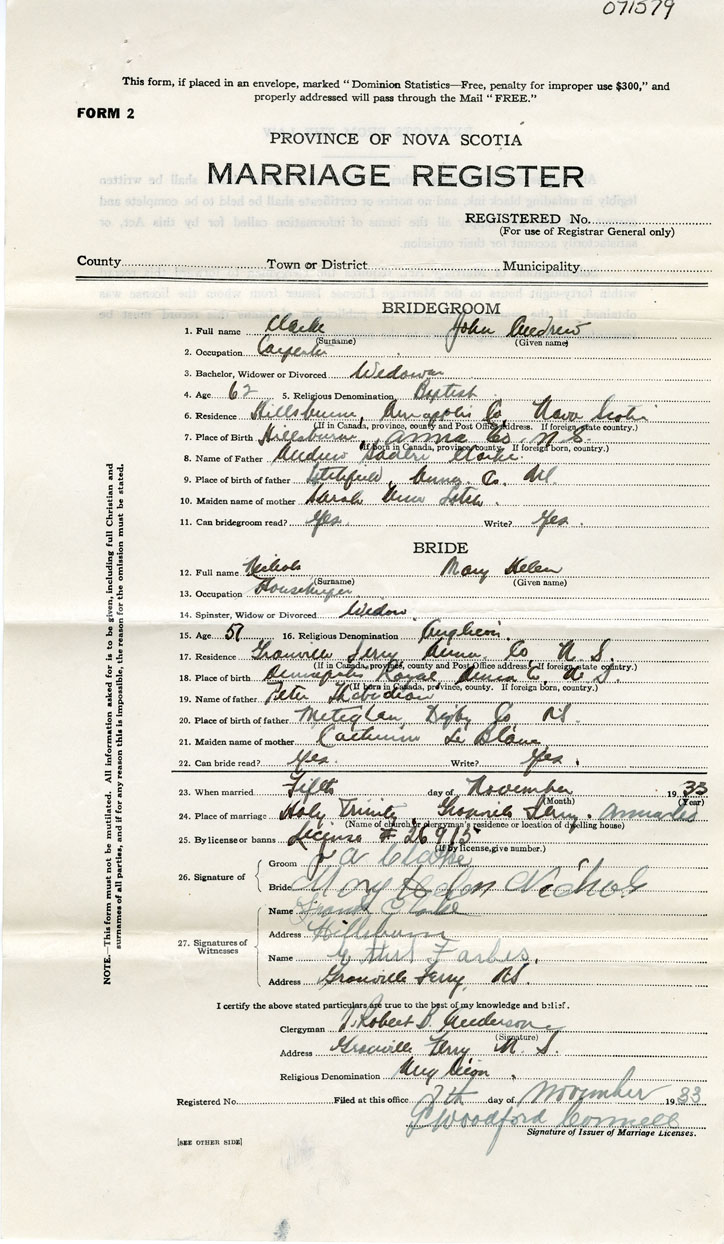 071579
This form, if placed in an envelope, marked "Dominion Statistics—Free, penalty for improper use $300," and
properly addressed will pass through the Mail "FREE."
FORM 2
PROVINCE OF NOVA SCOTIA
MARRIAGE REGISTER
REGISTERED No.
(For use of Registrar General only)
County Town or District Municipality
BRIDEGROOM
1. Full name Clarke John Andrew
(Surname) (Given name)
2. Occupation Carpenter
3. Bachelor, Widower or Divorced Widower
4. Age 62 5. Religious Denomination Baptist
6. Residence Hillsburn, Annapolis Co, Nova Scotia
(If in Canada, province, county and Post Office address. If foreign state country.)
7. Place of Birth Hillsburn, Anna Co N.S.
(If born in Canada, province, county. If foreign born, country.)
8. Name of Father Andrew Clarke
9. Place of birth of father Litchfield, Anna. Co. NS
10. Maiden name of mother Sarah Ann
11. Can bridegroom read? Yes. Write? Yes.
BRIDE
12. Full name Nichols Mary Helen
(Surname) (Given name)
13. Occupation Housekeeper
14. Spinster, Widow or Divorced Widow
15. Age 57 16. Religious Denomination Anglican.
17. Residence Granville Ferry Anna Co N.S.
(If in Canada, province, county and Post Office address. If foreign state country.)
18. Place of birth Annapolis Royal Anna Co, N.S.
(If born in Canada, province, county. If foreign born, country.)
19. Name of father Peter Thibideau
20. Place of birth of father Meteghan, Digby Co NS.
21. Maiden name of mother Catherine Le Blanc
22. Can bride read? Yes. Write? Yes.
23. When married Fifth day of November 1933
(Month) (Year)
24. Place of marriage Holy Trinity, Granville Ferry. Annapolis
(Name of church or clergyman's residence or location of dwelling house)
25. By license or banns License # 26915
(If by license, give number.)
26. Signature of Groom J A Clarke
Bride Mary Helen Nichols
27. Signatures of Witnesses
Name Frank Clarke
Address Hillsburn
Name Forbes.
Address Granville Ferry, NS.
I certify the above stated particulars are true to the best of my knowledge and belief.
Clergyman J. Robert B. Anderson
(Signature)
Address Granville Ferry N.S.
Religious Denomination Anglican.
Registered No. Filed at this office 7th day of November 1933
Woodford Connell
Signature of Issuer of Marriage Licenses.
[SEE OTHER SIDE]
NOTE.—This form must not be mutilated. All information asked for is to be given, including full Christian and
surnames of all parties, and if for any reason this is impossible, the reason for the omission must be stated.